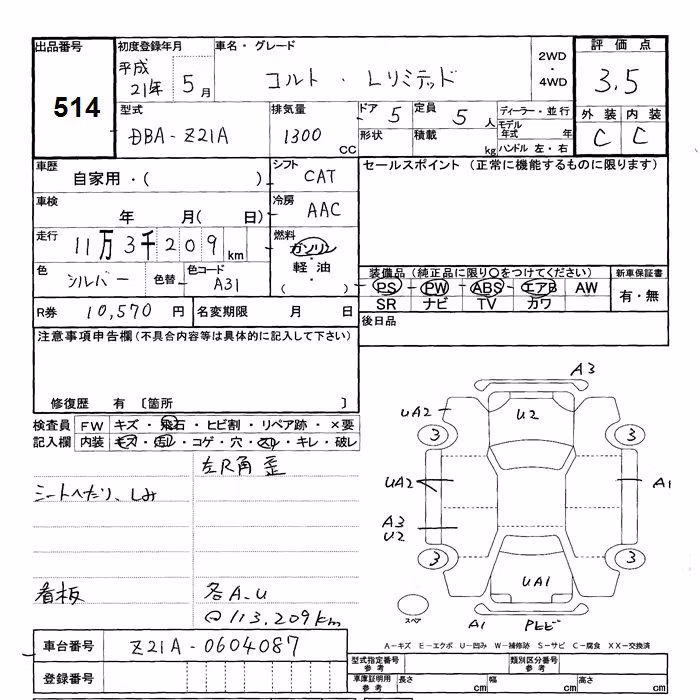 出品番号
514
初度登録年月
平成
21年 5月
車名・グレード
コルト・Lリミテッド
2WD
・
4WD
評価点
3.5
型式
DBA-Z21A
排気量
1300
CC
ドア 5
定員 5人
形状
積載 kg
ディーラー・並行
モデル
年式 年
ハンドル 左・右
外装 内装
C C
車歴
自家用・( )
シフト
CAT
セールスポイント (正常に機能するものに限ります)
車検
年 月( 日)
冷房
AAC
走行
11万3千209km
燃料
ガソリン
・
軽油
( )
色
シルバー
色替
色コード
A31
装備品 (純正品に限り○をつけてください)
PS PW ABS エアB AW
SR ナビ TV カワ
新車保証書
有・無
R券 10,570 円
名変期限 月 日
後日品
注意事項申告欄 (不具合内容等は具体的に記入して下さい)
修復歴 有 〔箇所 〕
検査員
記入欄
FW キズ・飛石・ヒビ割・リペア跡・×要
内装 キズ・汚レ・コゲ・穴・スリ・キレ・破レ
左R角 歪
シートへたり、しみ
看板
各A.U
@113,209km
A3
UA2
U2
3
3
UA2
A1
A3
U2
3
3
UA1
スペア
A1
Pヒビ
A-キズ E-エクボ U-凹み W-補修跡 S-サビ C-腐食 XX-交換済
車台番号 Z21A-0604087
登録番号
型式指定番号
参考
類別区分番号
参考
車庫証明用
参考
長さ cm
幅 cm
高さ cm